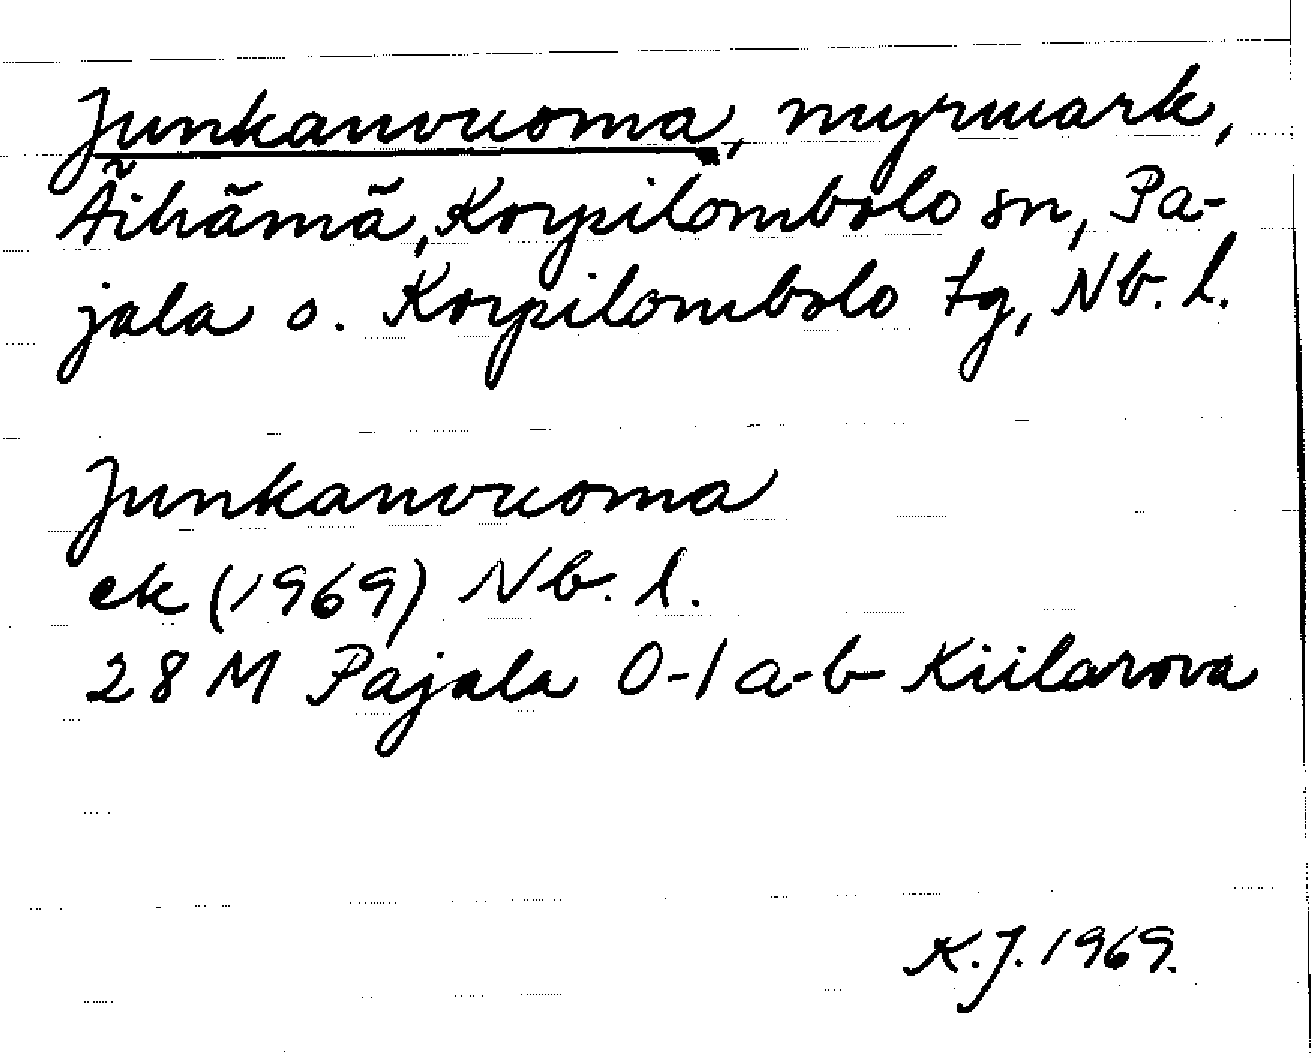 Junkanvuoma, myrmark,
Äihämä, Korpilombolo sn, Pa-
jala o. Korpilombolo tg, Nb. l.
Junkanvuoma
ek (1969) Nb. l.
28 M Pajala 0-1 a-b Kiilarova
K.J. 1969.